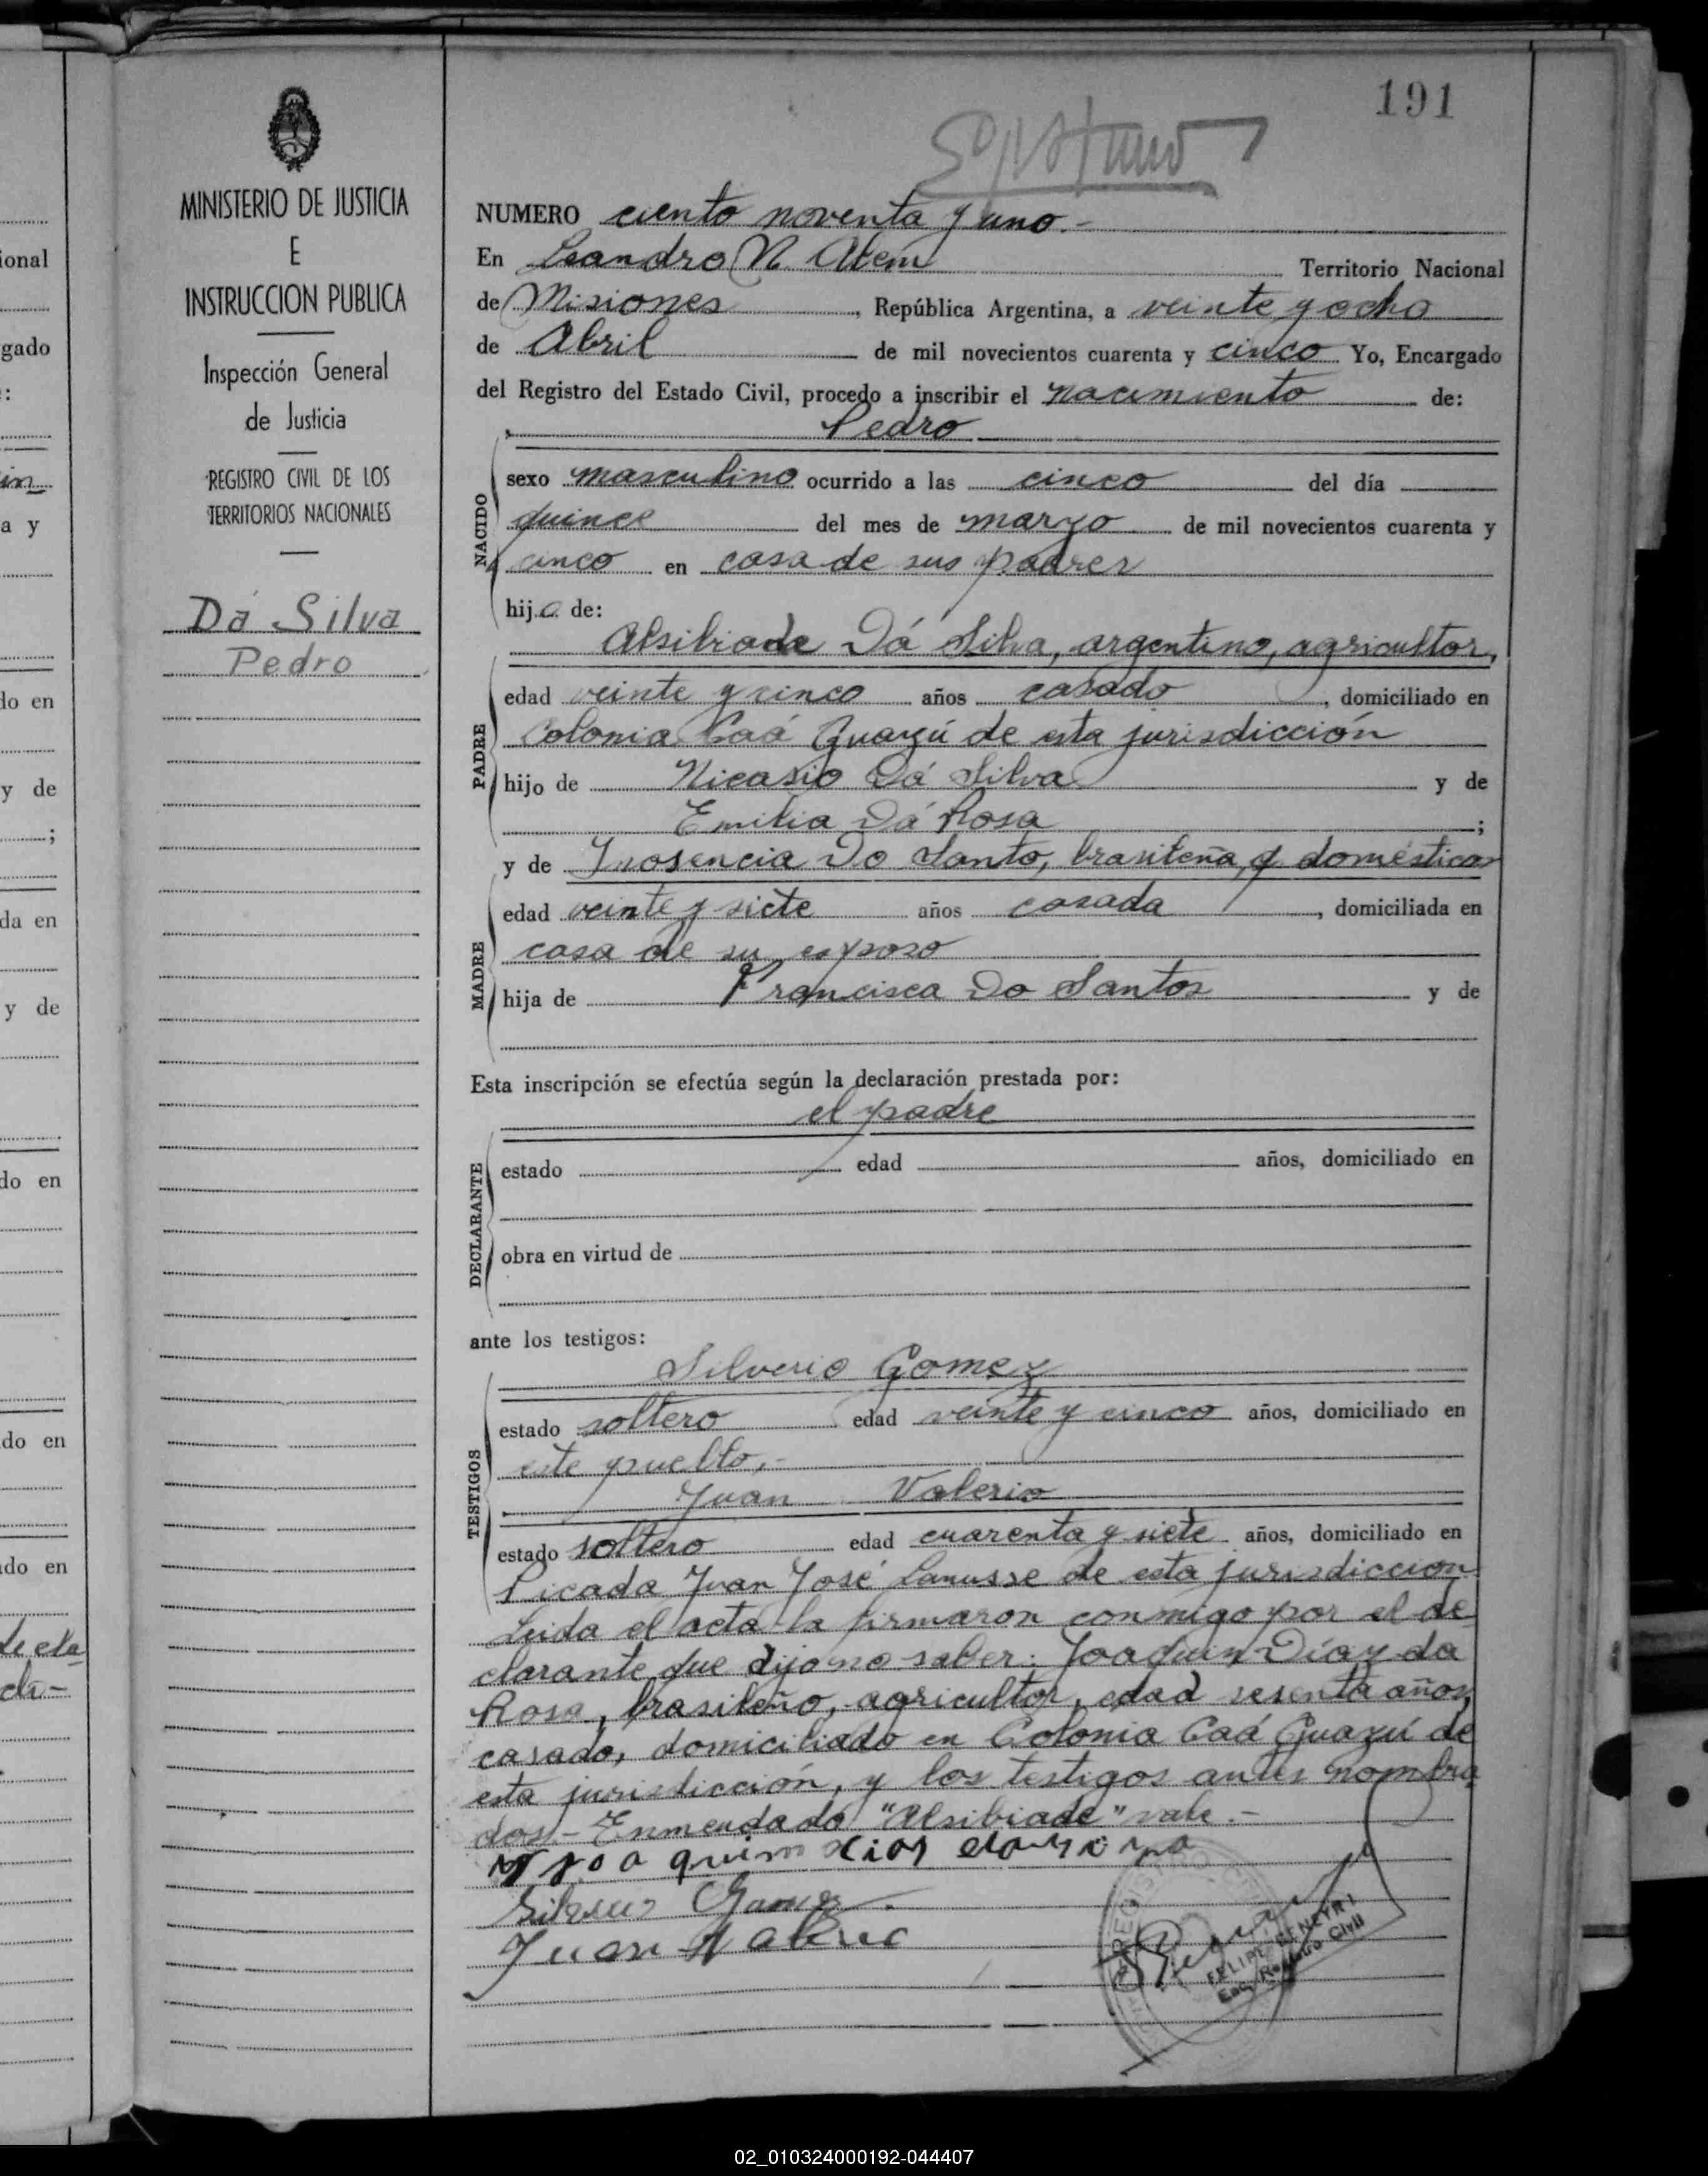 191
MINISTERIO DE JUSTICIA
E
INSTRUCCION PUBLICA
Inspección General
de Justicia
REGISTRO CIVIL DE LOS
TERRITORIOS NACIONALES
Dá Silva
Pedro
NUMERO ciento noventa y uno.-
En Leandro N. Alem Territorio Nacional
de Misiones, República Argentina, a veinte y ocho
de Abril de mil novecientos cuarenta y cinco Yo, Encargado
del Registro del Estado Civil, procedo a inscribir el nacimiento de:
Pedro
NACIDO
sexo masculino ocurrido a las cinco del día
quince del mes de marzo de mil novecientos cuarenta y
cinco en casa de sus padres
hijo de:
Alsibiade Dá Silva, argentino, agricultor,
PADRE
edad veinte y cinco años casado, domiciliado en
Colonia Caá Guazú de esta jurisdicción
hijo de Nicasio Dá Silva y de
Emilia Dá Rosa;
y de Inosencia Do Santo, brasileña, doméstica
MADRE
edad veinte y siete años casada, domiciliada en
casa de su esposo
hija de Francisca Do Santos y de
Esta inscripción se efectúa según la declaración prestada por:
el padre
DECLARANTE
estado edad años, domiciliado en
obra en virtud de
ante los testigos:
Silverio Gomez
TESTIGOS
estado soltero edad veinte y cinco años, domiciliado en
este pueblo,-
Juan Valerio
estado soltero edad cuarenta y siete años, domiciliado en
Picada Juan José Lanusse de esta jurisdiccion
Leida el acta la firmaron conmigo por el de
clarante que dijo no saber: Joaquin Díaz da
Rosa, brasileño, agricultor, edad sesenta años,
casado, domiciliado en Colonia Caá Guazú de
esta jurisdicción, y los testigos antes nombra
dos.- Enmendado "Alsibiade" vale.-
Juan
FELIPE
Enc. Registro Civil
ional
gado
:
in
a y
do en
y de
;
da en
y de
do en
do en
do en
02_010324000192-044407